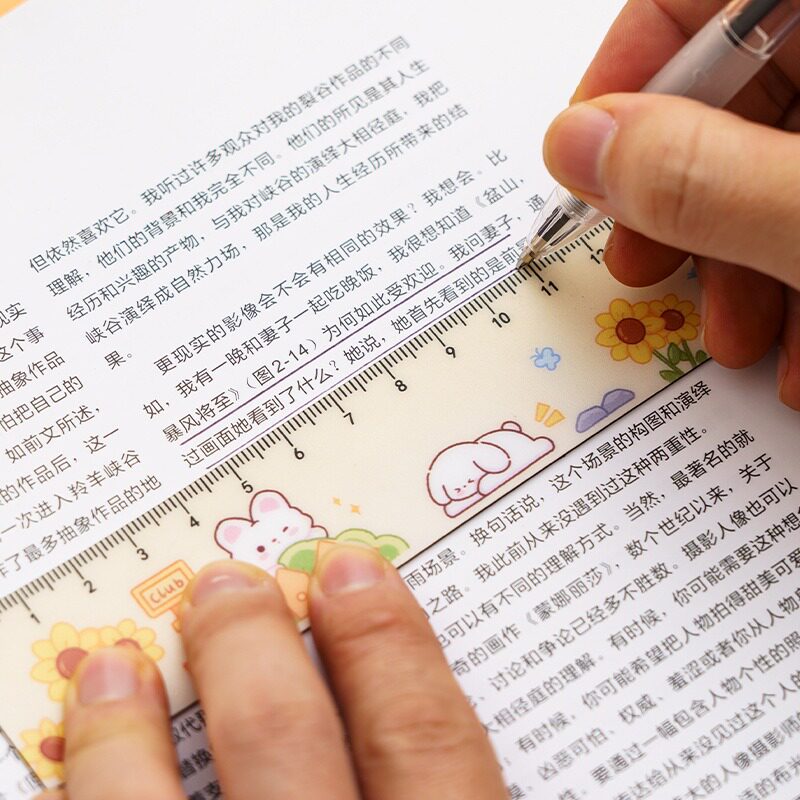 但依然喜欢它。我听过许多观众对我的裂谷作品的不同
理解，他们的背景和我完全不同。他们的所见是其人生
经历和兴趣的产物，与我对峡谷的演绎大相径庭，我把
峡谷演绎成自然力场，那是我的人生经历所带来的结
果。
更现实的影像会不会有相同的效果？我想会。比
如，我有一晚和妻子一起吃晚饭，我很想知道《盆山，
暴风将至》（图2-14）为何如此受欢迎。我问妻子，通
过画面她看到了什么？她说，她首先看到的是前
现实
这个事
抽象作品
怕把自己的
如前文所述，
的作品后，这一
一次进入羚羊峡谷
作了最多抽象作品的地
1 2 3 4 5 6 7 8 9 10 11 12
Club
雨场景。换句话说，这个场景的构图和演绎
之路。我此前从来没遇到过这种两重性。
也可以有不同的理解方式。当然，最著名的就
奇的画作《蒙娜丽莎》，数个世纪以来，关于
、讨论和争论已经多不胜数。摄影人像也可以
大相径庭的理解。有时候，你可能需要这种想
，有时候，你可能希望把人物拍得甜美可爱
、凶恶可怕、权威、羞涩或者你从人物
，要通过一幅包含人物个性的照
达给从来没见过这个人的
大的人像摄影师
的布光